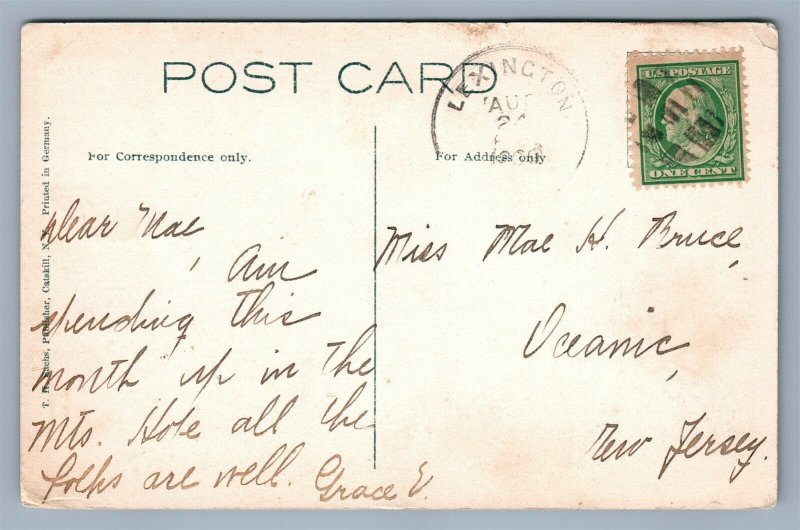 POST CARD
LEXINGTON
AUG
24
U.S. POSTAGE
ONE CENT
For Correspondence only.
For Address only
Printed in Germany.
Publisher, Catskill, N.
Dear Mae,
Am
spending this
month up in the
Mts. Hope all the
folks are well. Grace E.
Miss Mae H. Bruce,
Oceanic,
New Jersey.